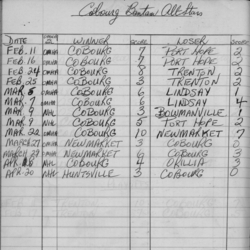 Cobourg Bantam All Stars
DATE WINNER SCORE LOSER SCORE
FEB. 11 OMHA COBOURG 7 PORT HOPE 2
FEB. 16 OMHA COBOURG 7 PORT HOPE 2
FEB. 24 OMHA COBOURG 8 TRENTON 2
FEB. 25 OMHA COBOURG 3 TRENTON 2
MAR 5 OMHA COBOURG 6 LINDSAY
MAR. 7 OMHA COBOURG 6 LINDSAY 4
MAR. 9 NHL COBOURG 3 BOWMANVILLE 1
MAR 9 NHL COBOURG 5 PORT HOPE 2
MAR 22 OMHA COBOURG 10 NEWMARKET 7
MARCH 27 OMHA NEWMARKET 3 COBOURG 0
MARCH 29 OMHA NEWMARKET 6 COBOURG 3
APR NHL COBOURG 4 ORILLIA 3
APR. 20 NHL HUNTSVILLE 3 COBOURG 0